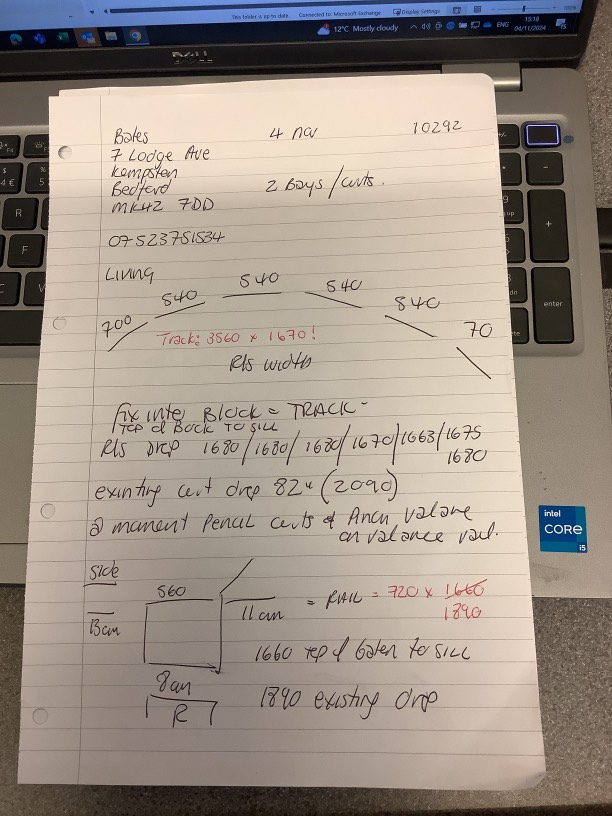 This folder is up to date Connected to: Microsoft Exchange Display Settings
12°C Mostly cloudy ENG 15:18
04/11/2024
DELL
Bates 4 nov 10292
7 Lodge Ave
Kempston
Bedford 2 Bays / curts.
MK42 7DD
07523751534
Living
700 540 540 540 840 70
Track: 3560 x 1670!
Rls width
fix into Block = TRACK -
Top of Back TO SILL
Rls Drop 1680/1680/1680/1670/1663/1675
1680
existing curt drop 82" (2090)
@ moment Pencil curts & valane
on valance rail.
Side
560
13cm 11cm = RAIL = 720 x 1660
1890
1660 top of to SILL
8cm
R 1890 existing drop
intel
CORE
i5
enter
R
F